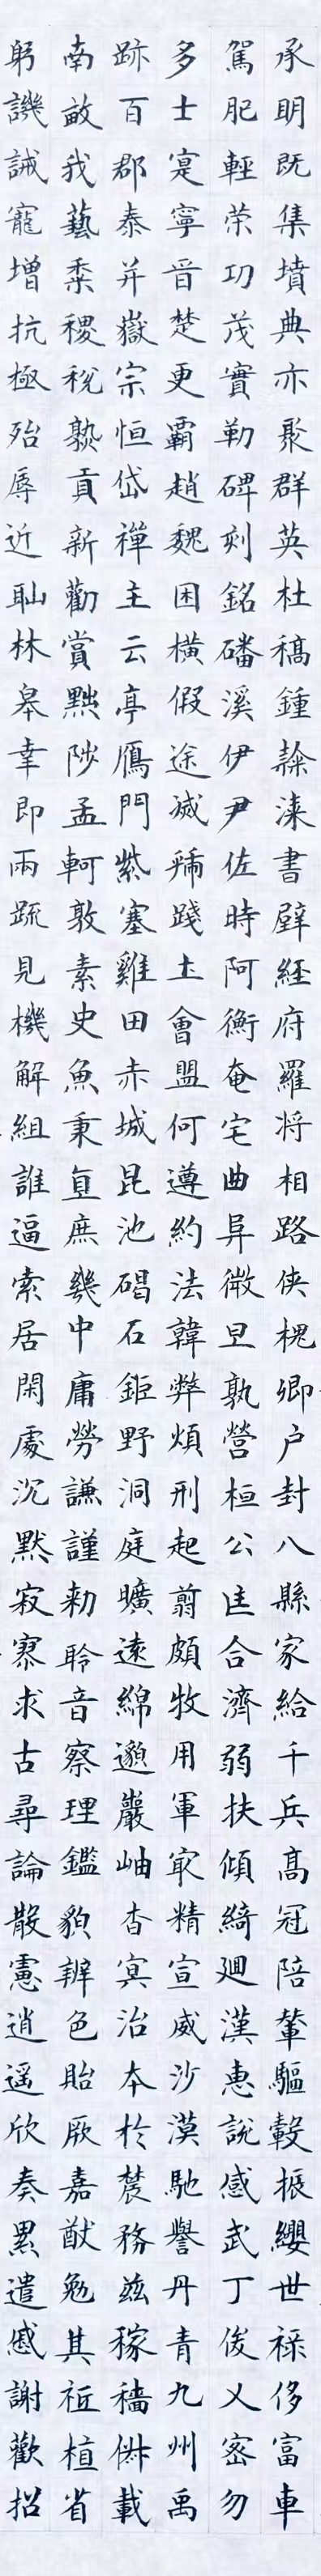 承明既集墳典亦聚群英杜稿鍾隸漆書壁経府羅将相路侠槐卿户封八縣家給千兵高冠陪輦驅轂振纓世禄侈富車
駕肥輕荣功茂實勒碑刻銘磻溪伊尹佐時阿衡奄宅曲阜微旦孰營桓公匡合濟弱扶傾綺廻漢惠説感武丁俊乂密勿
多士寔寧晋楚更霸趙魏困横假途滅虢踐土會盟何遵約法韓弊煩刑起翦頗牧用軍最精宣威沙漠馳譽丹青九州禹
跡百郡泰并嶽宗恒岱禪主云亭鴈門紫塞雞田赤城昆池碣石鉅野洞庭曠遠綿邈巖岫杳冥治本於農務兹稼穡俶載
南畝我藝黍稷税熟貢新勸賞黜陟孟軻敦素史魚秉直庶幾中庸勞謙謹勅聆音察理鑑貌辨色貽厥嘉猷勉其祗植省
躬譏誡寵增抗極殆辱近耻林皋幸即兩疏見機解組誰逼索居閑處沉默寂寥求古尋論散慮逍遥欣奏累遣慼謝歡招